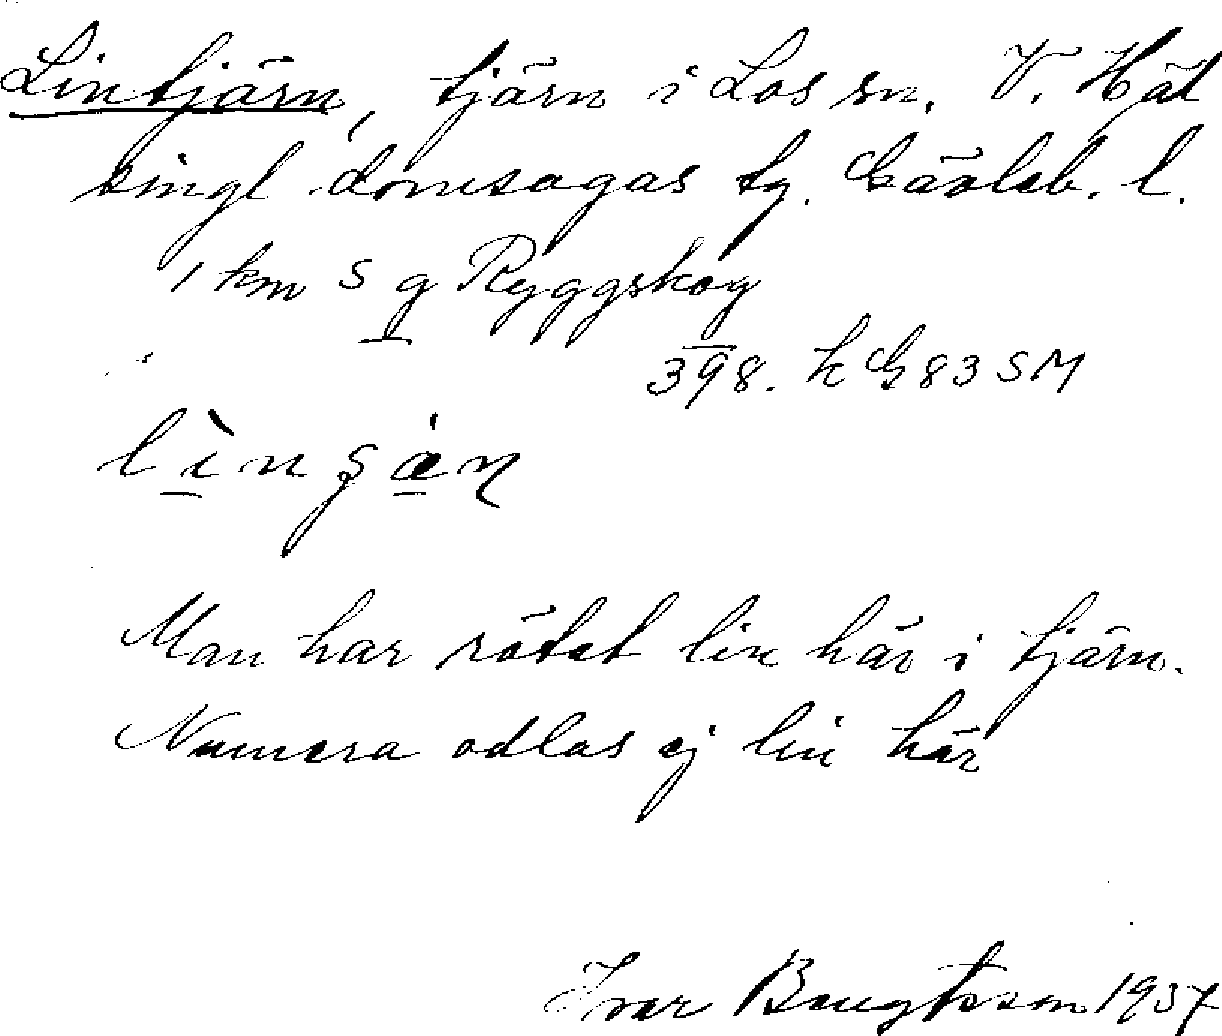 Lintjärn, tjärn i Los sn. V. Häl
singl domsagas tg. Gävleb. l.
1 km S g Ryggskog
398. h G 83 SM
Man har rötet lin här i tjärn.
Numera odlas ej lin här
Ivar Bengtsson 1937